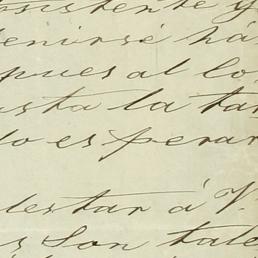 asistente y
venirse há
spues al lo
usta la tar
lo esperar
lestar á V.
s Son tale